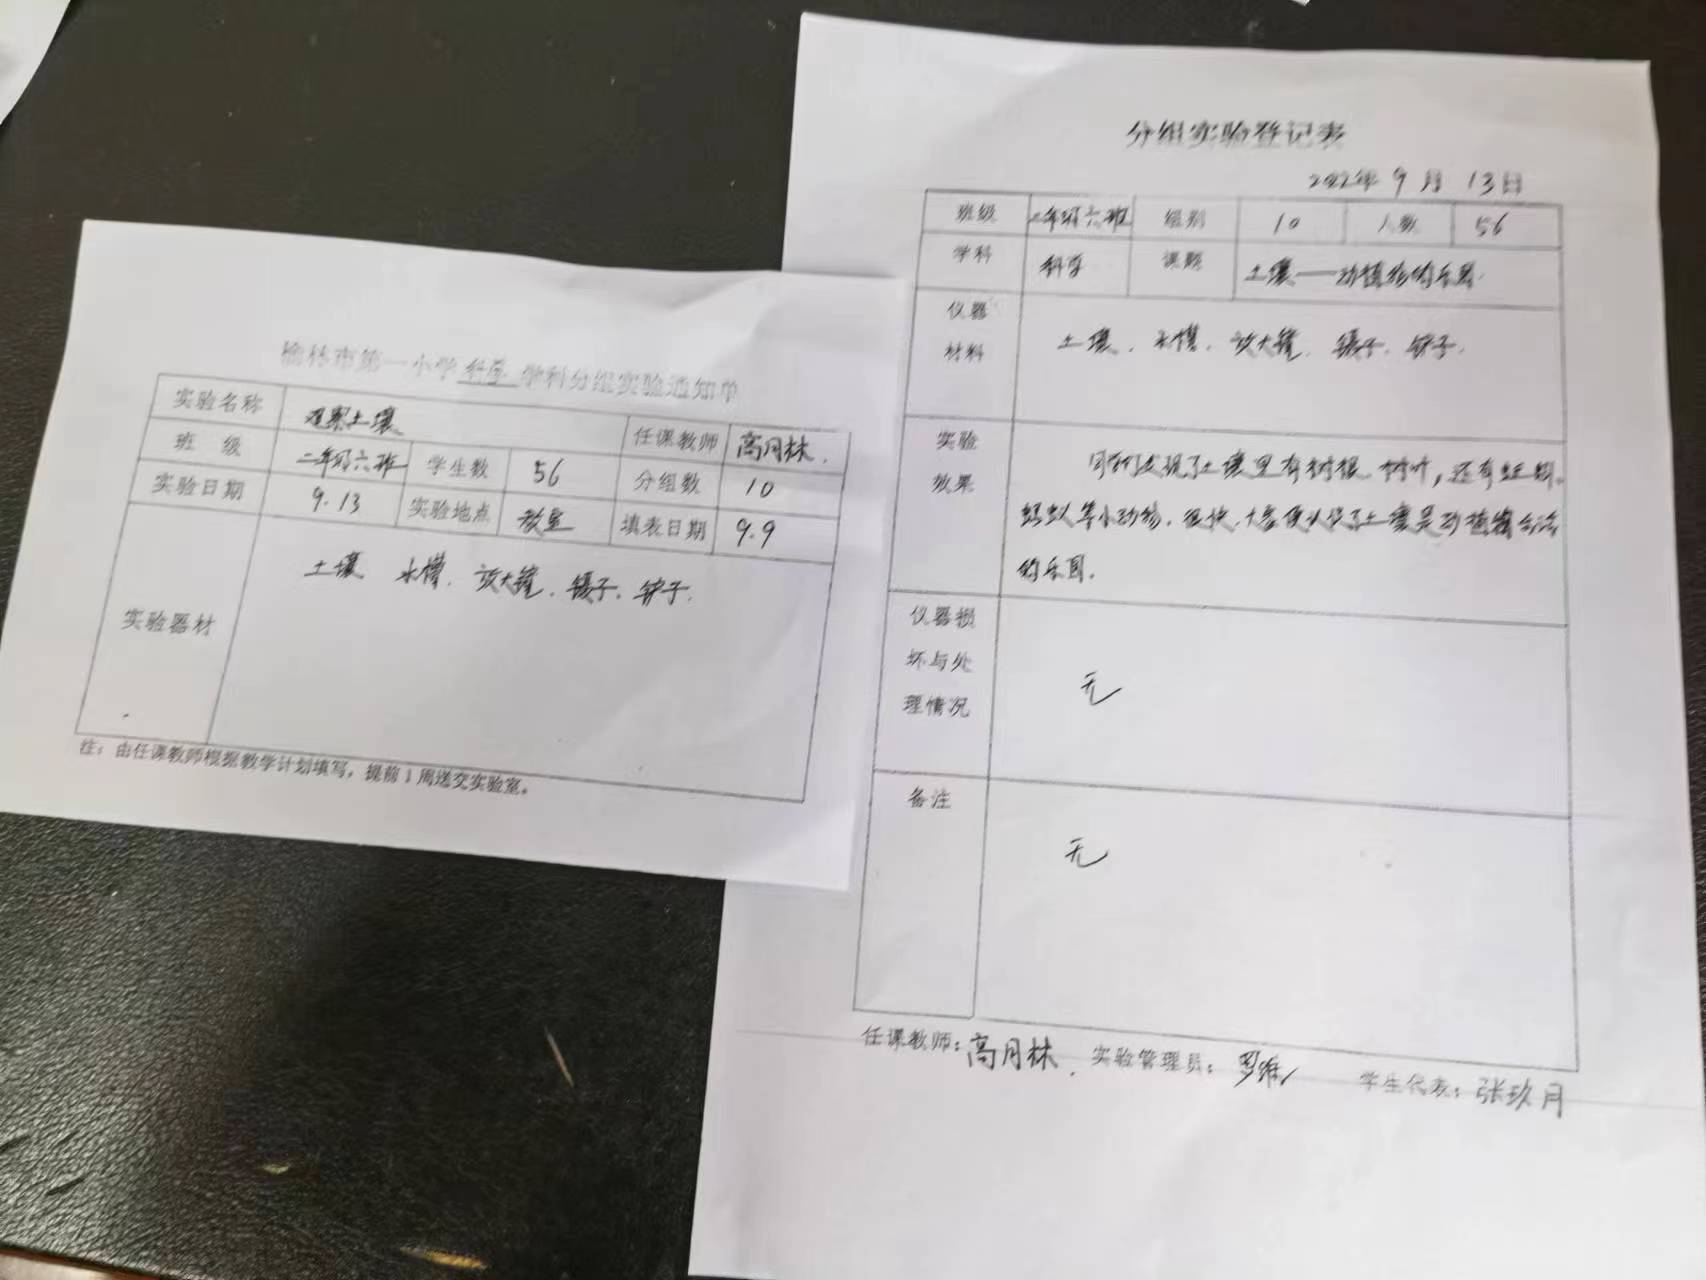 榆林市第一小学 科学 学科分组实验通知单
实验名称 观察土壤 任课教师 高月林.
班 级 二年级六班 学生数 56 分组数 10
实验日期 9.13 实验地点 教室 填表日期 9.9
实验器材 土壤 水槽、放大镜、镊子、铲子.
注：由任课教师根据教学计划填写，提前1周送交实验室。
分组实验登记表
2022年 9 月 13日
班级 二年级六班 组别 10 人数 56
学科 科学 课题 土壤——动植物的乐园.
仪器
材料
土壤、水槽、放大镜、镊子、铲子.
实验
效果
同学们发现了土壤里有树根、树叶，还有蚯蚓、
蚂蚁等小动物，很快，大家便认识了土壤是动植物
的乐园.
仪器损
坏与处
理情况
无
备注
无
任课教师：高月林. 实验管理员： 学生代表：张玖月